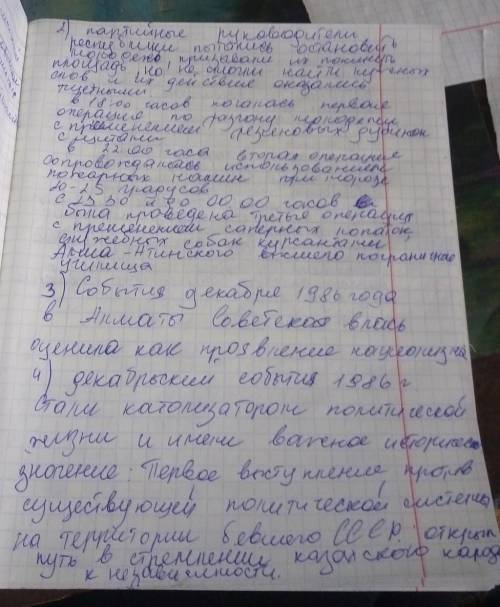 2) партийные руководители
республики пытались остановить
молодёжь, призывали их покинуть
площадь но не смогли найти нужных
слов и их действие оказались
тщетными.
в 18:00 часов началась первая
операция по разгону молодёжи
с применением резиновых дубинок
с щитами
в 22:00 часа вторая операция
сопровождалась использованием
пожарных машин при морозе
20-25 градусов
с 23 30 до 00 00 часов
была проведена третья операция
с применением саперных лопаток,
служебных собак курсантами
Алма-Атинского высшего пограничное
училища
3) События декабря 1986 года
в Алматы Советская власть
оценила как проявление национализма
4) декабрьские события 1986 г.
стали катализатором политической
жизни и имели важное историческ
значение: Первое выступление против
существующей политической системы
на территории бывшего СССР открыл
путь в стремлении казахского народа
к независимости.